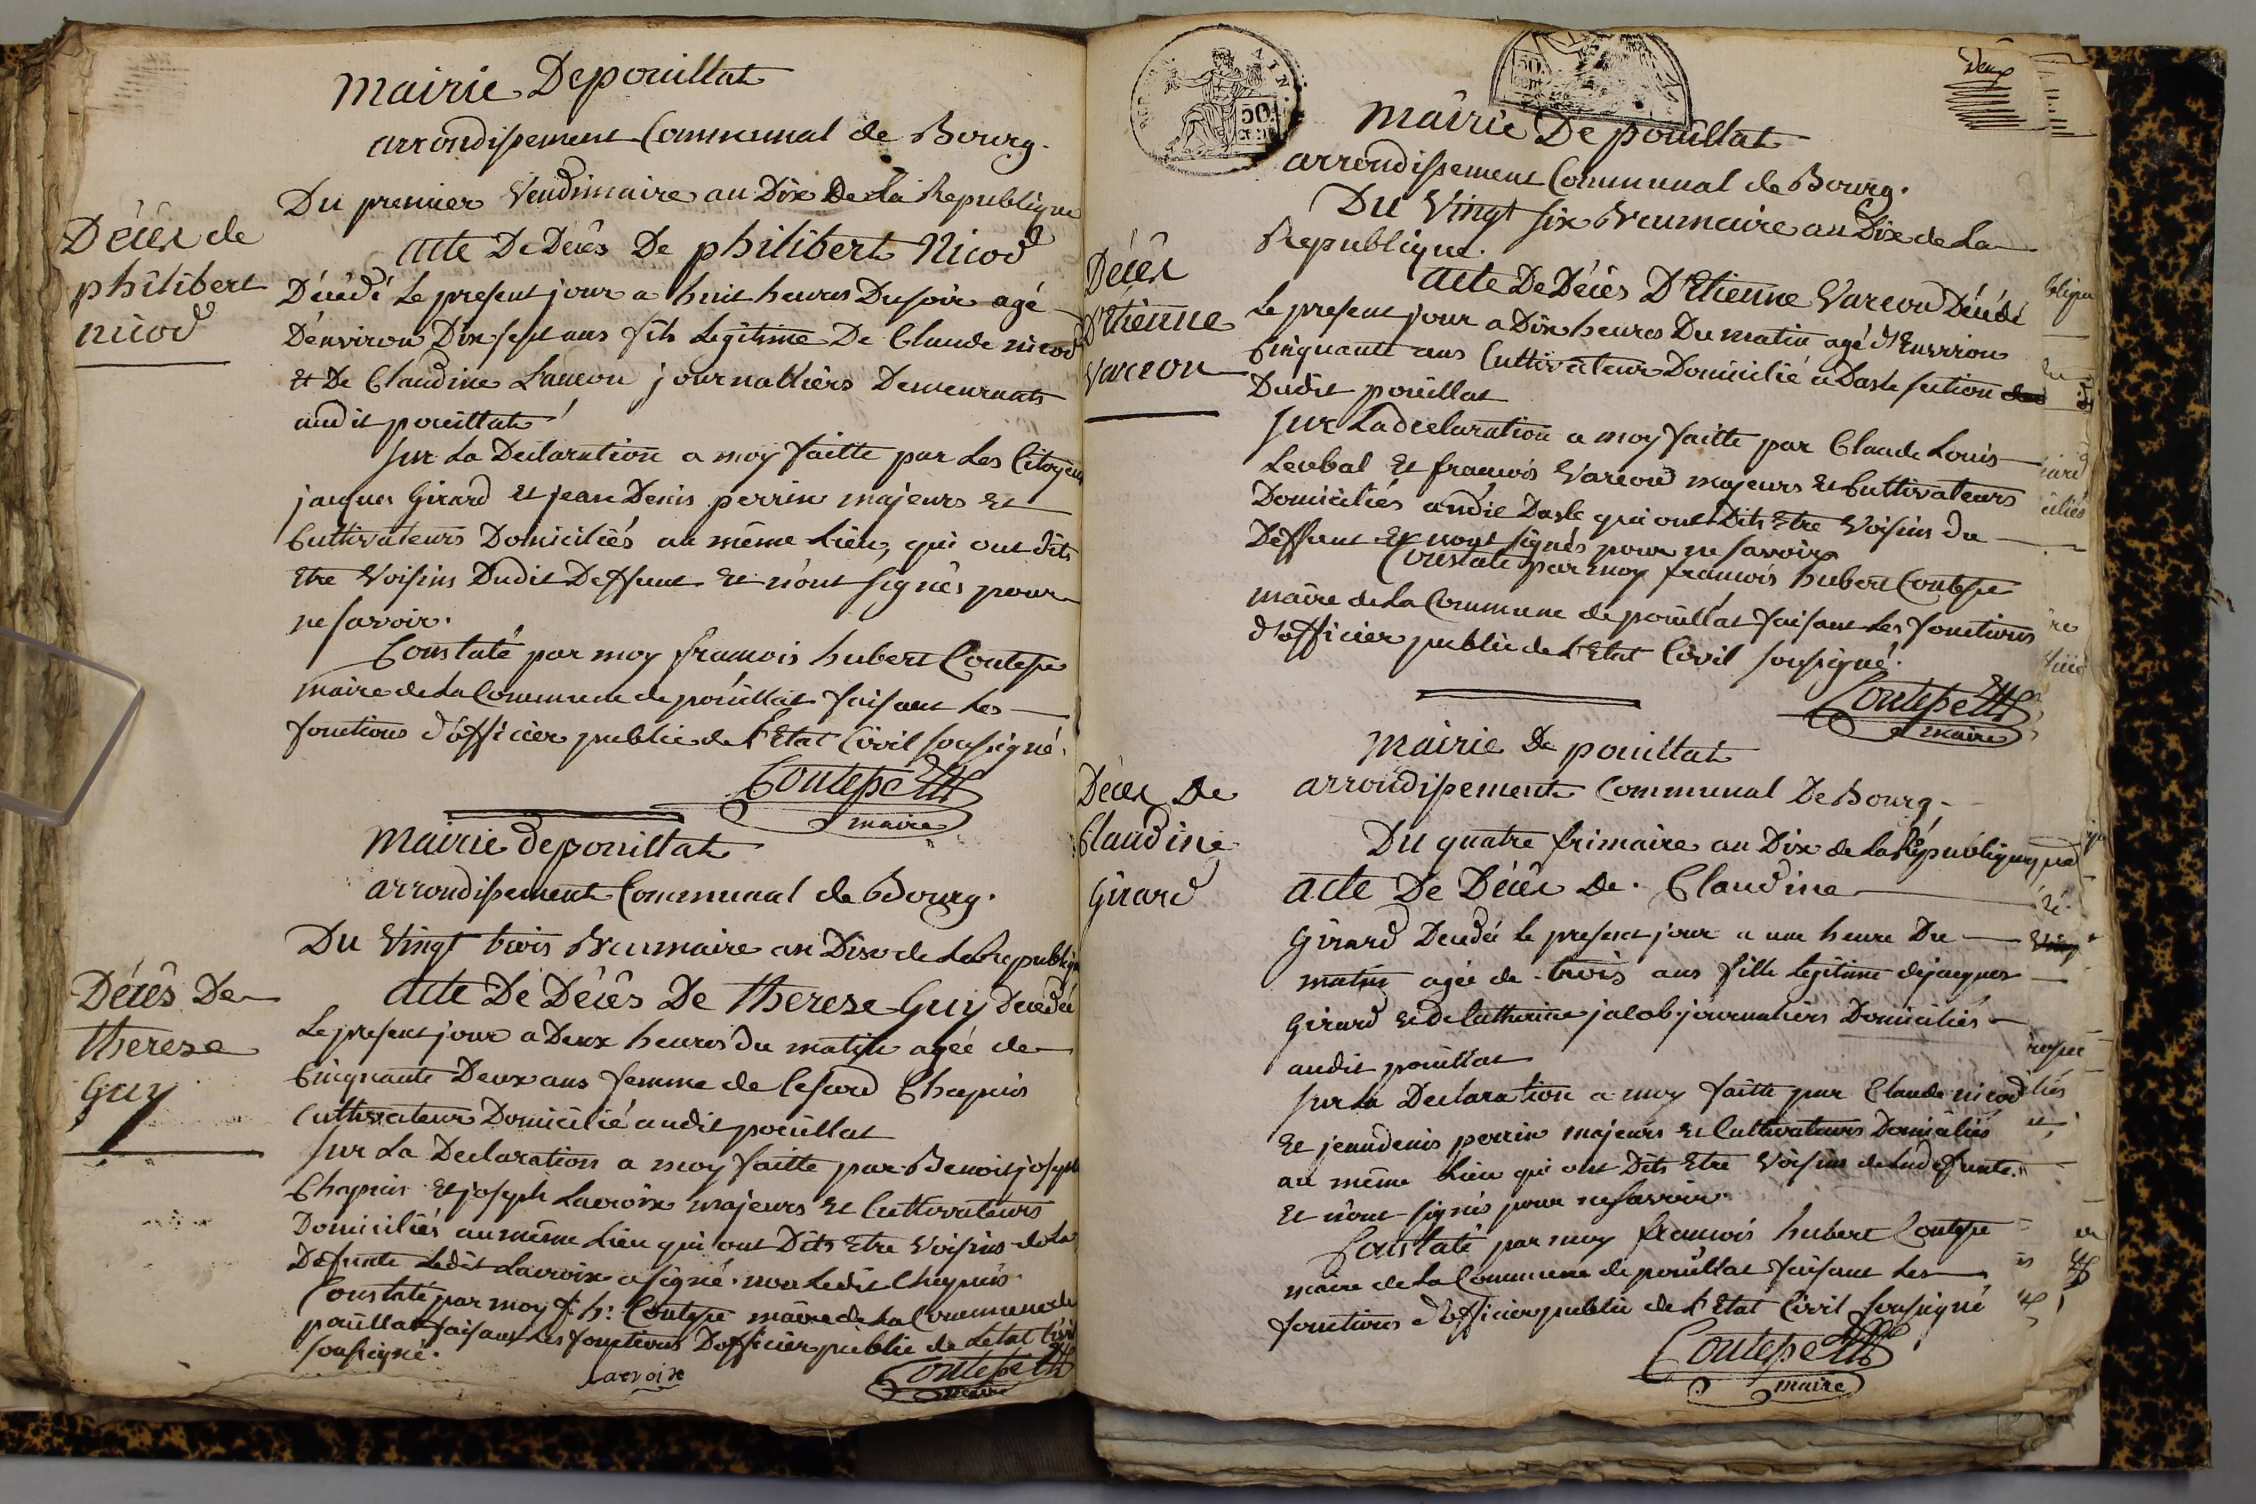 Mairie Depouillat
arrondissement Communal de Bourg.
Du premier Vendimaire an Dix De La Republique
Décès de
philibert
nicod
acte De Decès De philibert Nicod
Décédé Le present jour a huit heures Du soir agé
D'environ Dix sept ans fils Legitime De Claude nicod
et De Claudine Lancon journalliers Demeurants
audit pouillat
sur La Declaration a moy faitte par Les Citoyens
jacques Girard et jean Denis perrin majeurs et
Cultivateurs Domiciliés au même Lieu, qui ont dits
Etre Voisins Dudit Deffunt et n'ont signés pour
ne savoir.
Constaté par moy francois hubert Contesse
maire de La Commune de pouillat faisant Les
fonctions d'officier public de L'Etat Civil soussigné.
Contesse
maire
Mairie de pouillat
arrondissement Communal de Bourg.
Du Vingt trois Brumaire an Dix de La Republique
Décès De
therese
Guy
acte De Décès De therese Guy Decedée
Le present jour a Deux heures du matin agée de
Cinquante Deux ans femme de Cesard Chapuis
Cultivateur Domicilié audit pouillat
sur La Declaration a moy faitte par Benoit joseph
Chapuis et joseph Lacroix majeurs et Cultivateurs
Domiciliés au même Lieu qui ont Dits Etre Voisins de La
Defunte Ledit Lacroix a signé. non Ledit Chapuis.
Constaté par moy f. h: Contesse maire de La Commune de
pouillat faisant Les fonctions D'officier public de Letat Civil
soussigné.
Lacroix
Contesse
maire
AIN.
50
50
Deux
Mairie De pouillat
arrondissement Communal de Bourg.
Du Vingt six Brumaire an Dix de La
Republique.
Décès
D'Etienne
Varcon
acte De Décès D'Etienne Varcon Décédé
Le present jour a Dix heures Du matin agé d'Environ
Cinquante ans Cultivateur Domicilié a Dasle section
Dudit pouillat
sur La declaration a moy faitte par Claude Louis
Lecbal et francois Varcon majeurs et Cultivateurs
Domiciliés audit Dasle qui ont Dits Etre Voisins du
Deffunt et n'ont signés pour ne savoir
Constaté par moy francois hubert Contesse
maire de La Commune de pouillat faisant Les fonctions
d'officier public de L'Etat Civil soussigné.
Contesse
maire
Mairie De pouillat
arrondissement Communal De Bourg.
Du quatre frimaire an Dix de La République
Décès De
Claudine
Girard
acte De Décès De. Claudine
Girard Decedée Le present jour a une heure Du
matin agée de trois ans fille Legitime de jacques
Girard et de Catherine jacob journaliers Domiciliés
audit pouillat
sur La Declaration a moy faitte par Claude nicod
et jean denis perrin majeurs et Cultivateurs Domiciliés
au même Lieu qui ont Dits Etre Voisins de Lad. defunte.
et n'ont signés pour ne savoir.
Constaté par moy francois hubert Contesse
maire de La Commune de pouillat faisant Les
fonctions d'officier public de L'Etat Civil soussigné
Contesse
maire